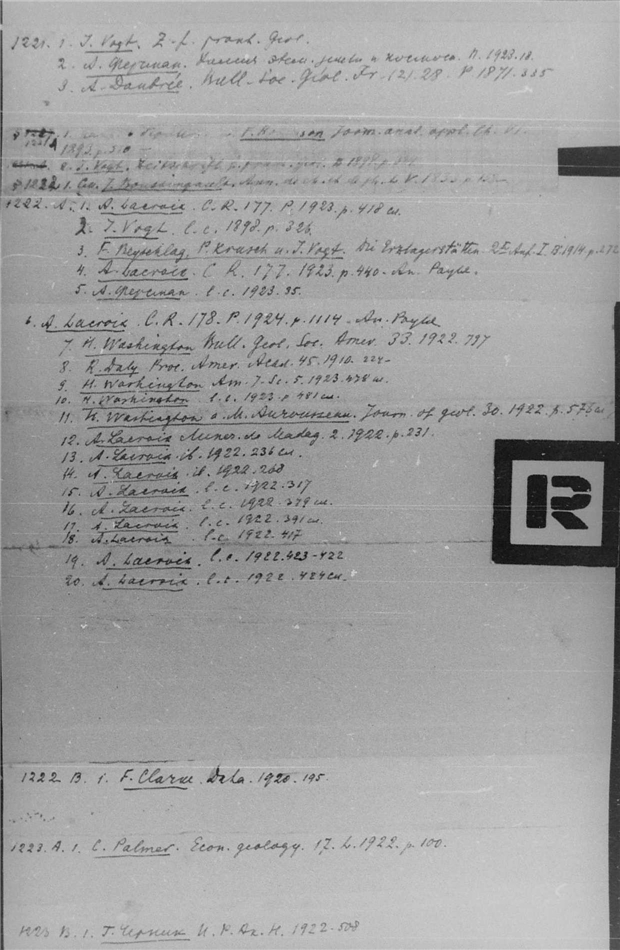 1221. 1. J. Vogt. Z. f. prakt. Geol.
2. А. Ферсман. земли и космоса. П. 1923. 18.
3. A. Daubrée. Bull. Soc. Géol. Fr. (2). 28. P 1871. 335
1. Journ. anal. appl. Ch. VI.
1892. p. 510
2. J. Vogt. Zeitschrift f. prakt. Geol. 1898. p.
1222. 1. J. Boussingault. Ann. de ch. et de ph.
1222. A. 1. A. Lacroix. C. R. 177. P. 1923. p. 418 сл.
2. J. Vogt. l. c. 1898. p. 326.
3. F. Beyschlag, P. Krusch u. J. Vogt. Die Erzlagerstätten. 2 Auf. I. B. 1914. p. 272
4. A. Lacroix. C. R. 177. 1923. p. 440. Ан. Raoult.
5. А. Ферсман. l. c. 1923. 35.
6. A. Lacroix. C. R. 178. P. 1924. p. 1114. Ан.
7. H. Washington Bull. Geol. Soc. Amer. 33. 1922. 797
8. R. Daly. Proc. Amer. Acad. 45. 1910. 224-
9. H. Washington Am. J. Sc. 5. 1923. 478 сл.
10. H. Washington. l. c. 1923. p. 481 сл.
11. H. Washington a. M. Aurousseau. Journ. of geol. 30. 1922. p. 573 сл.
12. A. Lacroix Miner. de Madag. 2. 1922. p. 231.
13. A. Lacroix ib. 1922. 236 сл.
14. A. Lacroix. ib. 1922. 268
15. A. Lacroix. l. c. 1922. 317
16. A. Lacroix. l. c. 1922. 379 сл.
17. A. Lacroix. l. c. 1922. 391 сл.
18. A. Lacroix. l. c. 1922. 417
19. A. Lacroix. l. c. 1922. 423-422
20. A. Lacroix. l. c. 1922. 424 сл.
R
1222 B. 1. F. Clarke. Data. 1920. 195.
1223. A. 1. C. Palmer. Econ. geology. 17. L. 1922. p. 100.
1223 B. 1. Г. Черник И. Р. Ак. Н. 1922. 508